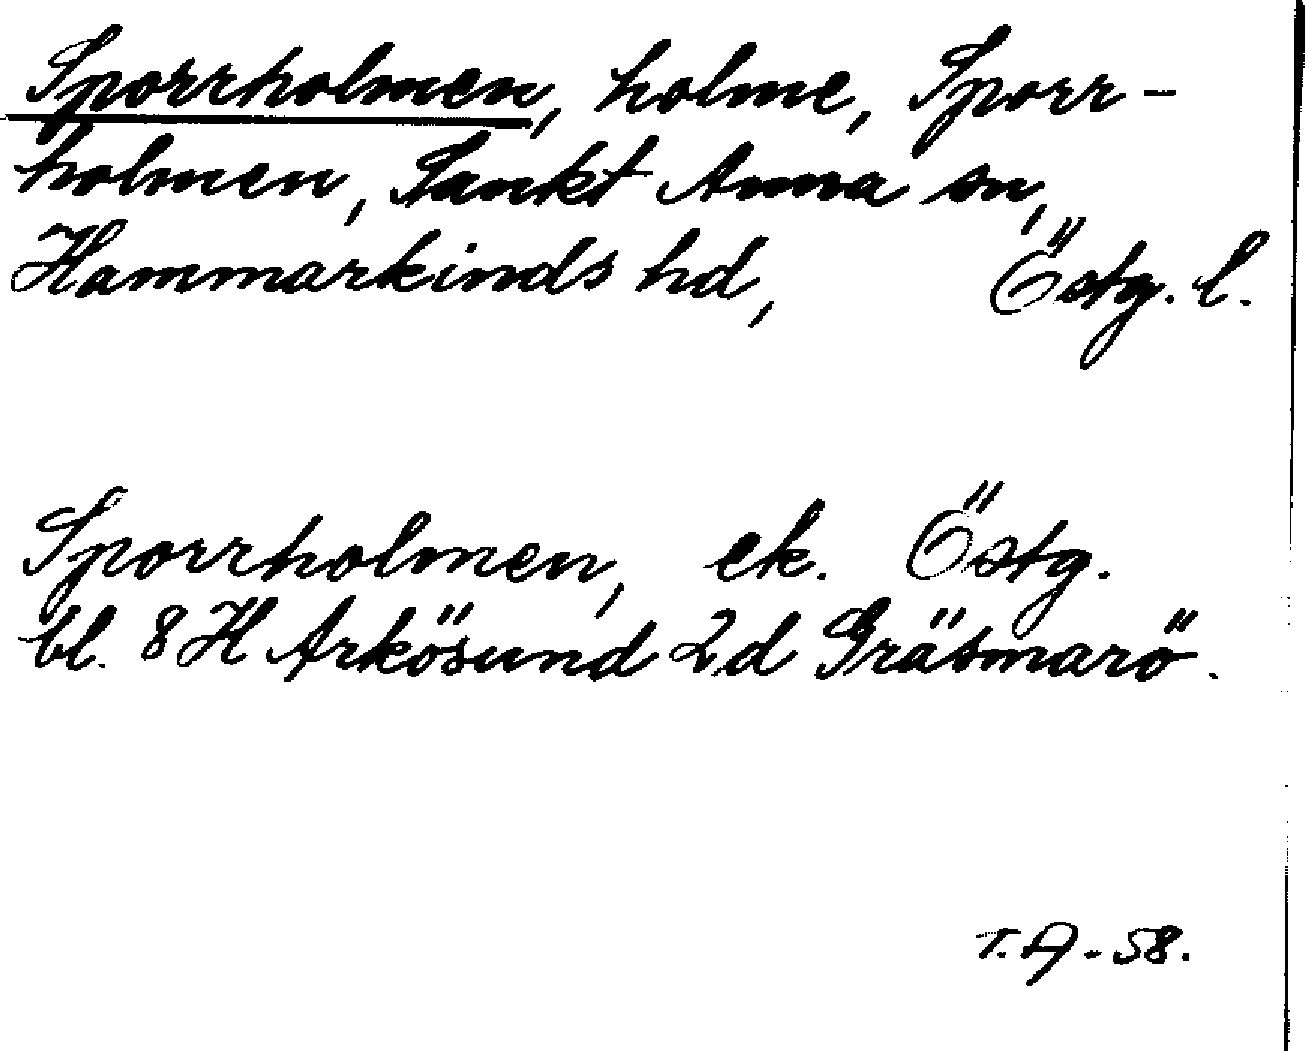 Sporrholmen, holme, Sporr-
holmen, Sankt Anna sn,
Hammarkinds hd, Östg. l.
Sporrholmen, ek. Östg.
bl. 8 H Arkösund 2d Gräsmarö.
T.A-58.